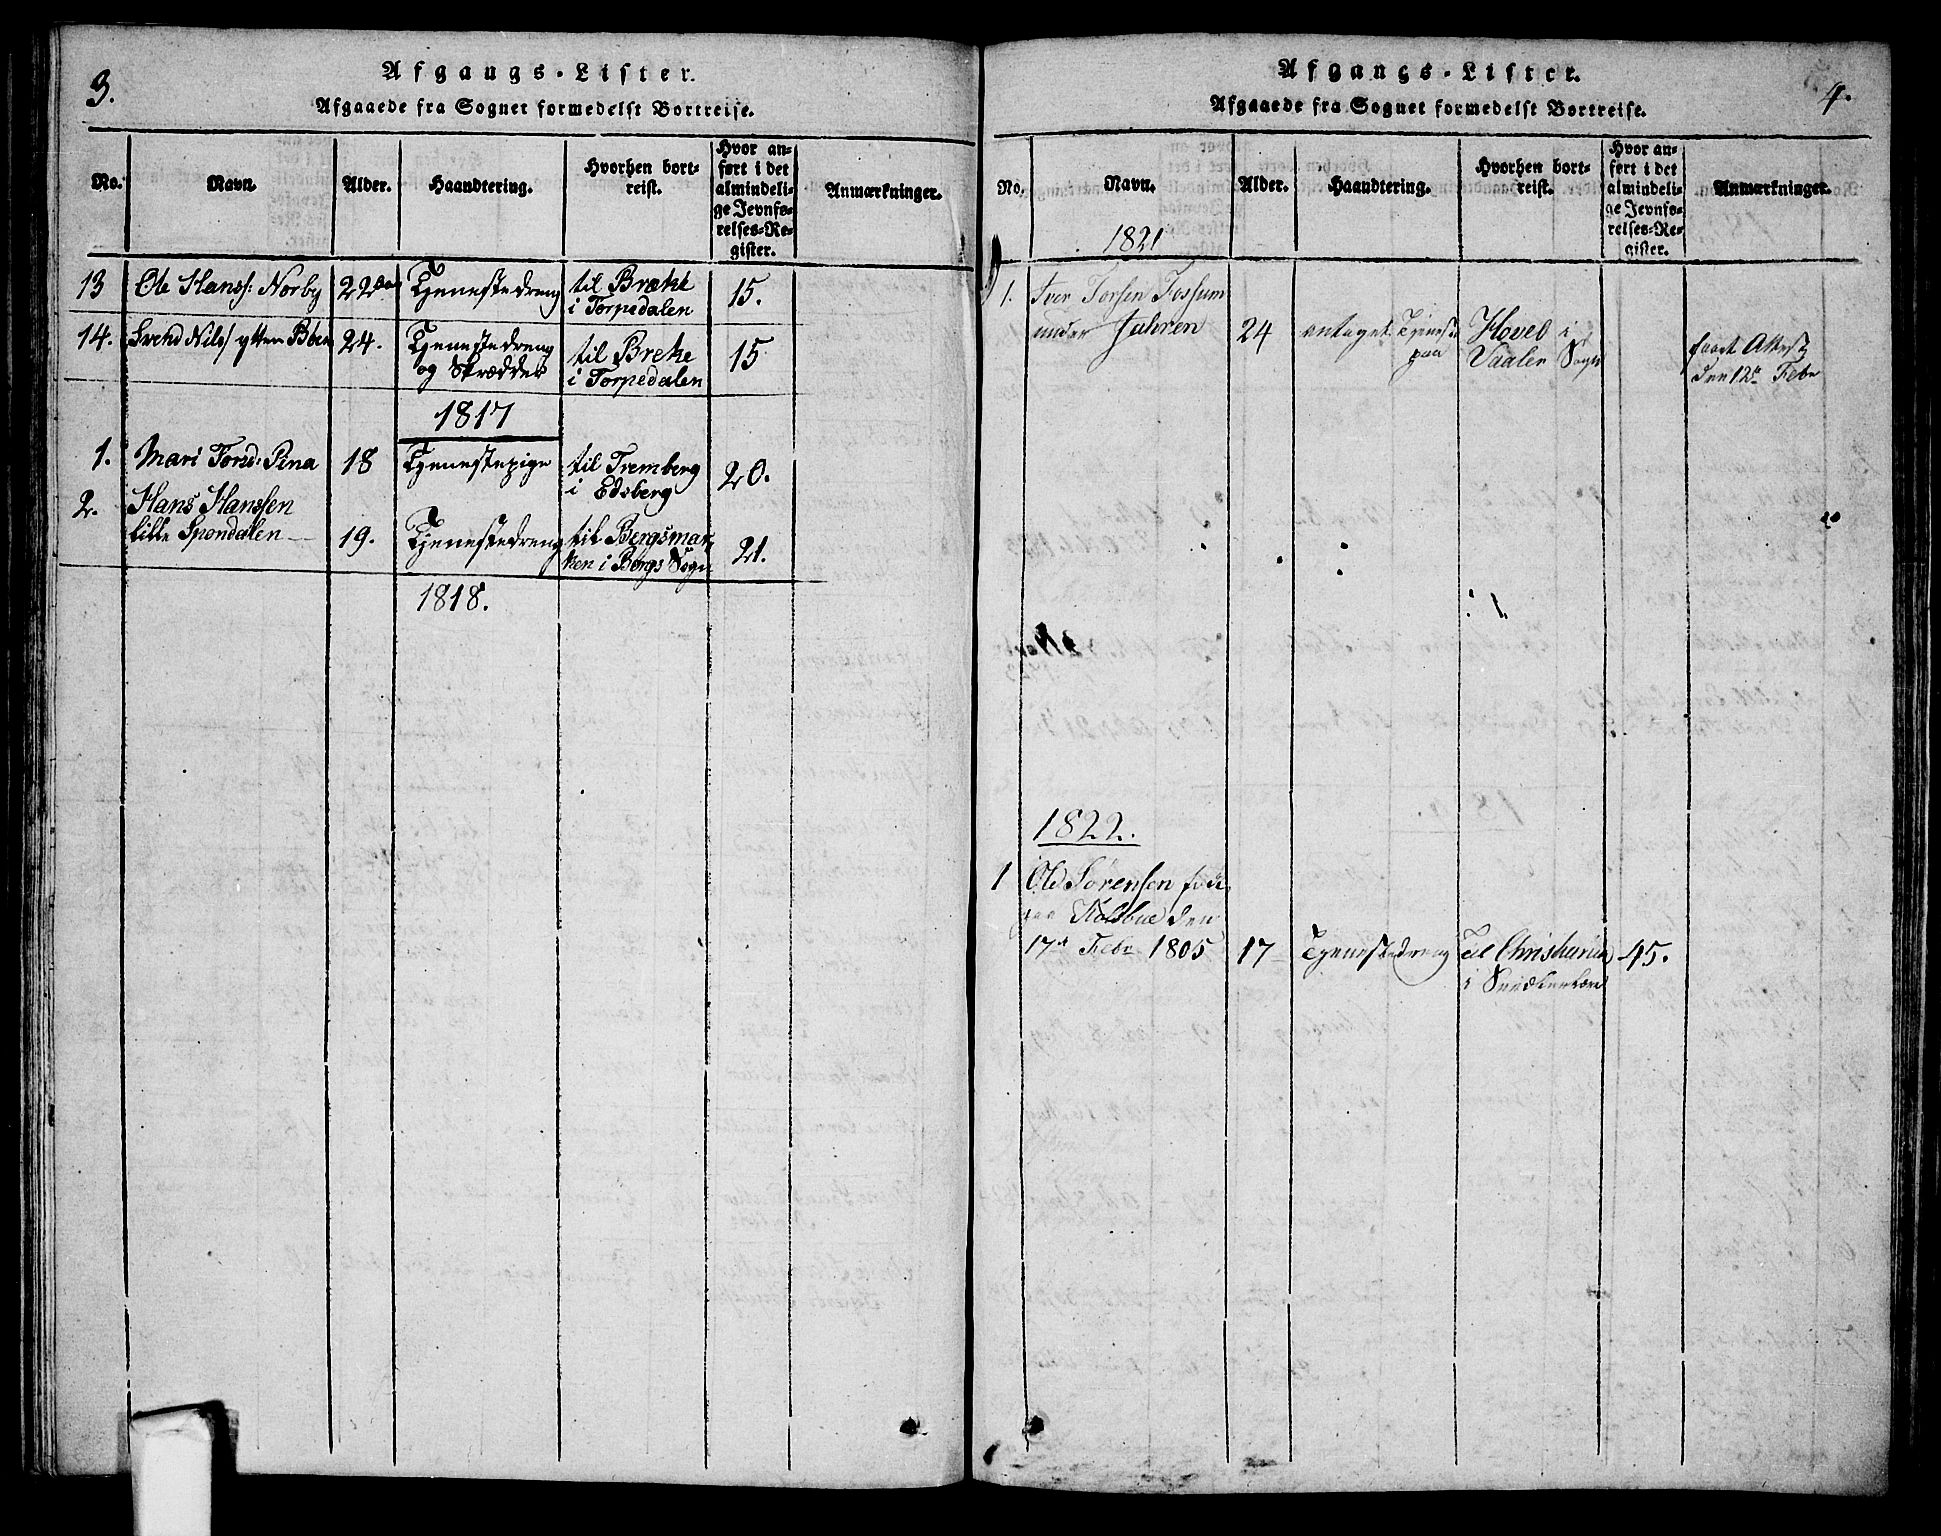 3.
Afgangs-Lister.
Afgaaede fra Sognet formedelst Bortreise.
No. Navn. Alder. Haandtering. Hvorhen bort-
reist. Hvor an-
ført i det
almindeli-
ge Jevnfø-
relses-Re-
gister. Anmærkninger.
13 Ole Hanss: Norby 22 Tjenestedreng til Bræke
i Torpedalen 15.
14. Svend Nilss ytter Böen 24. Tjenestedreng
og Skrædder til Breke
i Torpedalen 15
1817
1. Mari Torsd: Pina 18 Tjenestepige til Tremberg
i Edsberg 20.
2. Hans Hanssen
lille Spondalen 19. Tjenestedreng til Bergsmar
ken i Bergs Sogn 21.
1818.
4.
Afgangs-Lister.
Afgaaede fra Sognet formedelst Bortreise.
No. Navn. Alder. Haandtering. Hvorhen bort-
reist. Hvor an-
ført i det
almindeli-
ge Jevnfø-
relses-Re-
gister. Anmærkninger.
1821
1. Iver Torsen Fossum
under Jahren 24 antaget Tjeneste
paa Hovel i
Vaaler Sogn faaet Attest
den 12te Febr
1822.
1 Ole Sørensen fød
paa Kolsbue den
17de Febr 1805 17 Tjenestedreng Til Christiania
i Snedkerlære 45.